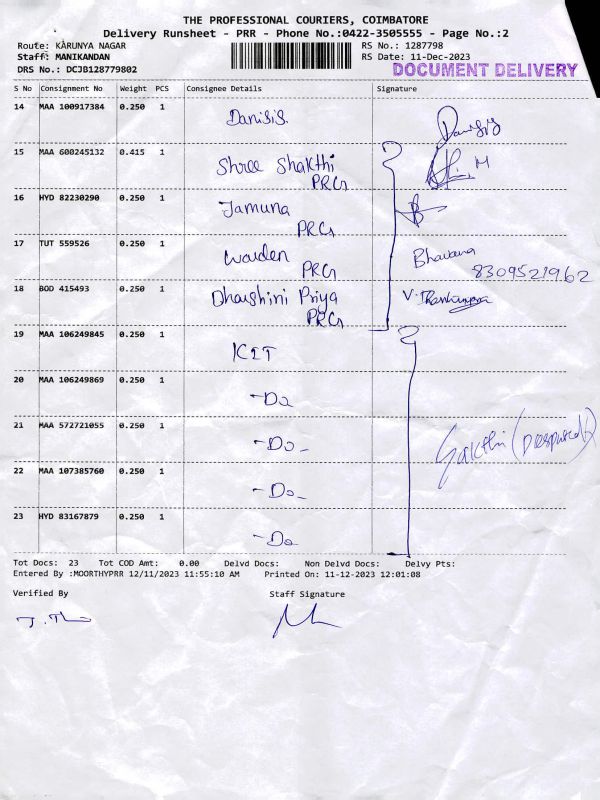 THE PROFESSIONAL COURIERS, COIMBATORE
Delivery Runsheet - PRR - Phone No.:0422-3505555 - Page No.:2
Route: KARUNYA NAGAR RS No.: 1287798
Staff: MANIKANDAN RS Date: 11-Dec-2023
DRS No.: DCJB128779802 DOCUMENT DELIVERY
S No Consignment No Weight PCS Consignee Details Signature
14 MAA 100917384 0.250 1 Danisis.
15 MAA 600245132 0.415 1 Shree Shakthi
PRG
16 HYD 82230290 0.250 1 Jamuna
PRG
17 TUT 559526 0.250 1 Warden Bhavana
PRG 8309521962
18 BOD 415493 0.250 1 Dharshini Priya
PRG
19 MAA 106249845 0.250 1 KIT
20 MAA 106249869 0.250 1 -Do
21 MAA 572721055 0.250 1 -Do- Sakthi
22 MAA 107385760 0.250 1 -Do-
23 HYD 83167879 0.250 1 -Do
Tot Docs: 23 Tot COD Amt: 0.00 Delvd Docs: Non Delvd Docs: Delvy Pts:
Entered By :MOORTHYPRR 12/11/2023 11:55:10 AM Printed On: 11-12-2023 12:01:08
Verified By Staff Signature